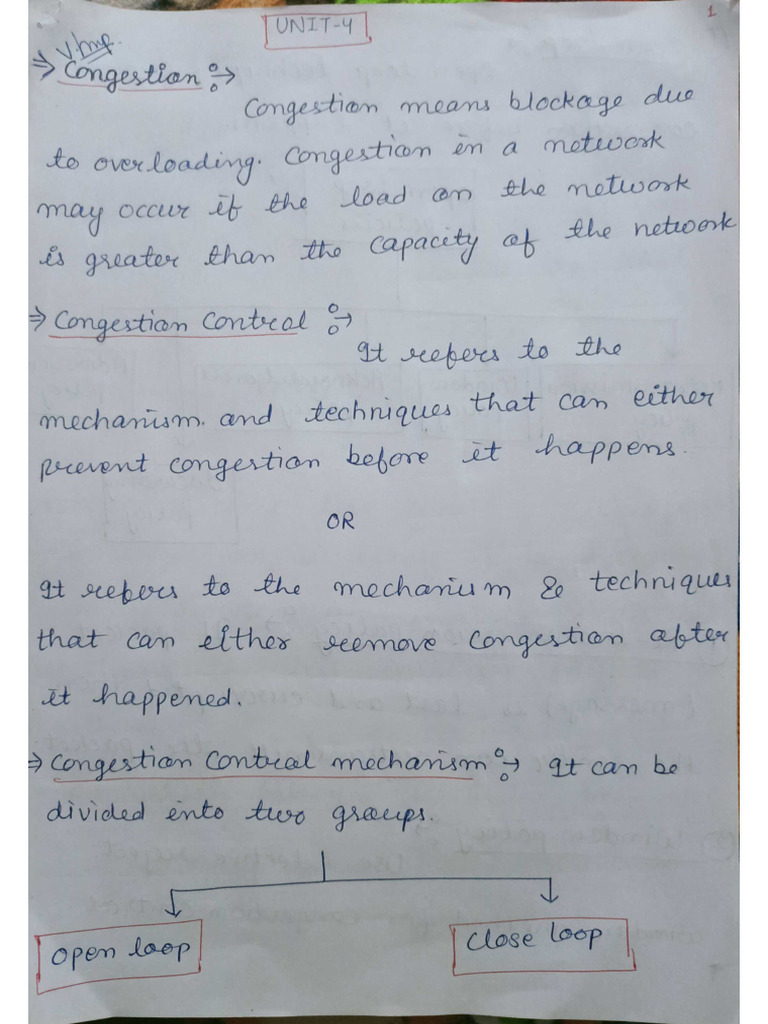 1
UNIT-4
V.Imp.
⇒ Congestion :→
Congestion means blockage due
to overloading. Congestion in a network
may occur if the load on the network
is greater than the capacity of the network
⇒ Congestion Control :→
It refers to the
mechanism. and techniques that can either
prevent congestion before it happens.
OR
It refers to the mechanism & techniques
that can either remove congestion after
it happened.
⇒ Congestion Control mechanism :→ It can be
divided into two groups.
Open loop
Close loop